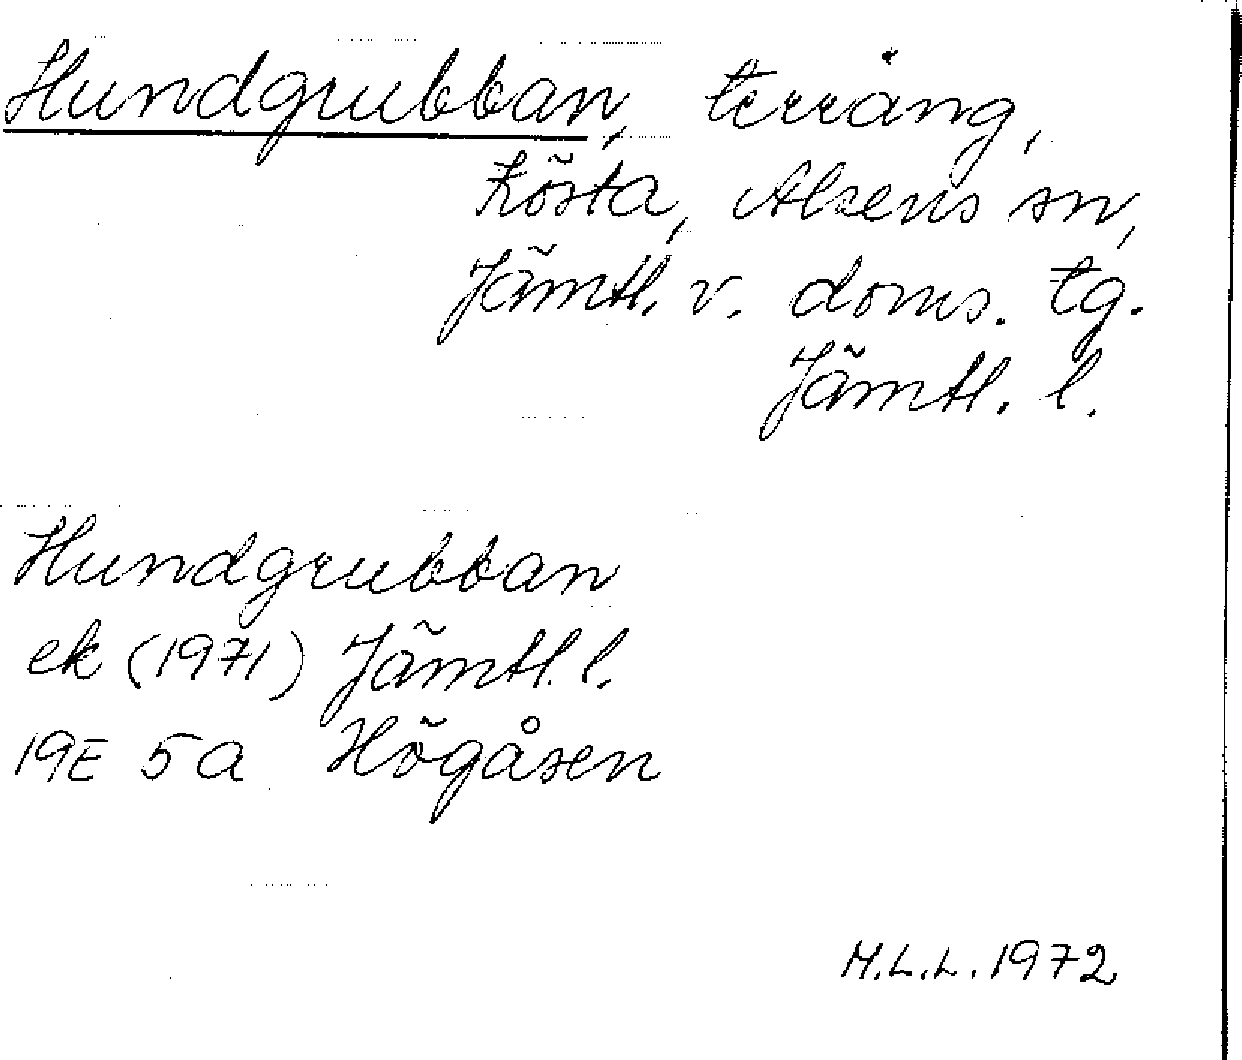 Hundgrubban, terräng,
Kösta, Alsens sn,
Jämtl. v. doms. tg.
Jämtl. l.
Hundgrubban
ek (1971) Jämtl. l.
19E 5a Högåsen
M.L.L. 1972